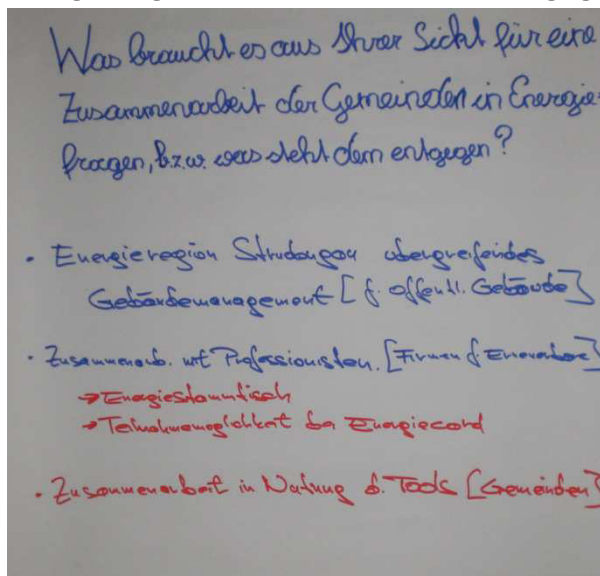 Was braucht es aus Ihrer Sicht für eine
Zusammenarbeit der Gemeinden in Energie-
fragen, bzw. was steht dem entgegen?
• Energieregion Strudengau übergreifendes
Gebäudemanagement [f. öffentl. Gebäude]
• Zusammenarb. mit Professionisten. [Firmen f. Erneuerbare]
→ Energiestammtisch
→ Teilnahmemöglichkeit bei
• Zusammenarbeit in Nutzung d. Tools [Gemeinden]